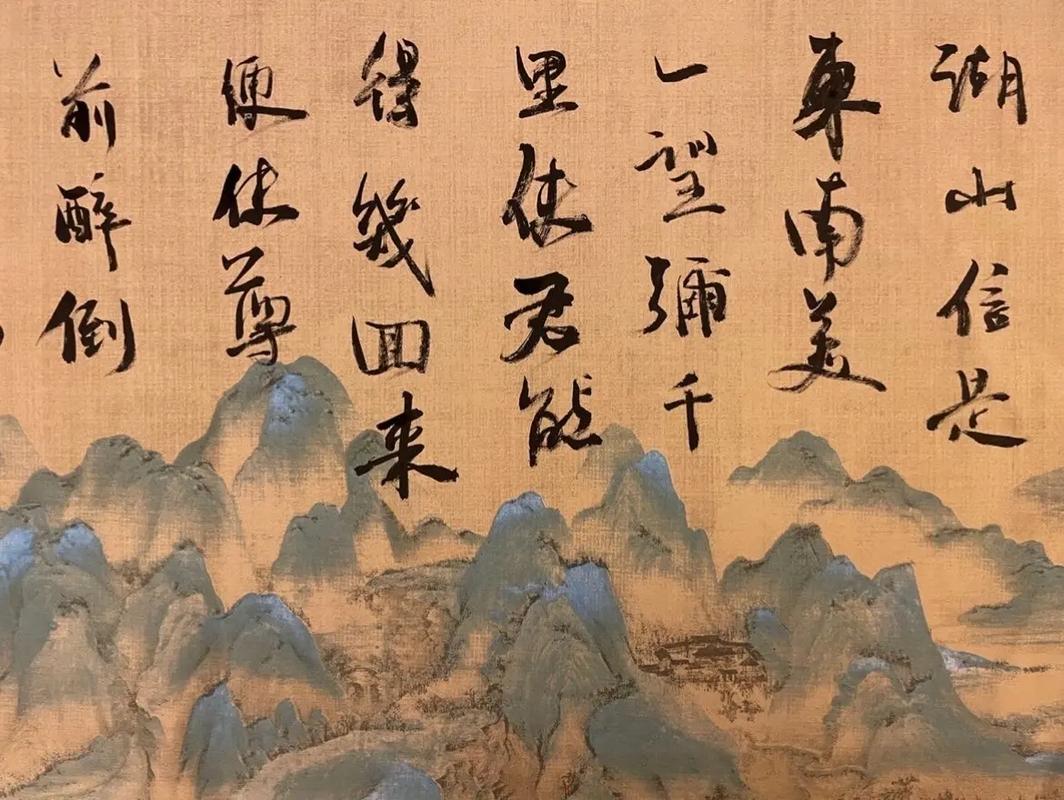 湖山信是
東南美
一望彌千
里使君能
得幾回来
便使尊
前醉倒